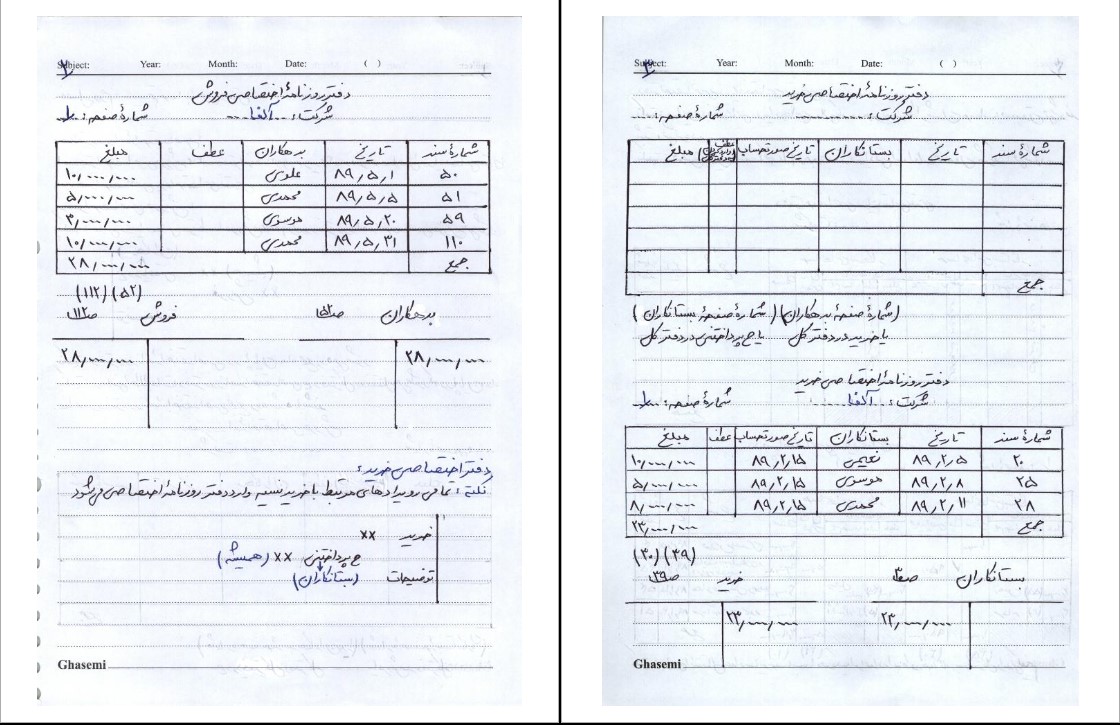 Subject: Year: Month: Date: ( )
دفتر روزنامهٔ اختصاصی فروش
شرکت: ..آلفا.... شمارهٔ صفحه: ۱
شمارهٔ سند تاریخ بدهکاران عطف مبلغ
۵۰ ۸۹٫۵٫۱ علوی ۱۰٫۰۰۰٫۰۰۰
۵۱ ۸۹٫۵٫۵ محمدی ۵٫۰۰۰٫۰۰۰
۵۹ ۸۹٫۵٫۲۰ موسوی ۳٫۰۰۰٫۰۰۰
۱۱۰ ۸۹٫۵٫۳۱ محمدی ۱۰٫۰۰۰٫۰۰۰
جمع ۲۸٫۰۰۰٫۰۰۰
(۵۲) (۱۱۲)
بدهکاران ص۵۲ فروش ص۱۱۲
۲۸٫۰۰۰٫۰۰۰ ۲۸٫۰۰۰٫۰۰۰
دفتر اختصاصی خرید:
نکته: تمامی رویدادهای مرتبط با خرید نسیه وارد دفتر روزنامه اختصاصی می‌شود
خرید ××
ح پرداختنی ×× (همیشه)
توضیحات (بستانکاران)
Ghasemi
Subject: Year: Month: Date: ( )
دفتر روزنامهٔ اختصاصی خرید
شرکت: ............ شمارهٔ صفحه: ....
شمارهٔ سند تاریخ بستانکاران تاریخ صورتحساب عطف مبلغ
جمع
(شمارهٔ صفحهٔ بدهکاران) (شمارهٔ صفحهٔ بستانکاران)
یا خرید در دفتر کل یا ح پرداختنی در دفتر کل
دفتر روزنامهٔ اختصاصی خرید
شرکت: ..آلفا...... شمارهٔ صفحه: ۱
شمارهٔ سند تاریخ بستانکاران تاریخ صورتحساب عطف مبلغ
۲۰ ۸۹٫۲٫۵ نعیمی ۸۹٫۲٫۱۵ ۱۰٫۰۰۰٫۰۰۰
۲۵ ۸۹٫۲٫۸ موسوی ۸۹٫۲٫۱۵ ۵٫۰۰۰٫۰۰۰
۲۸ ۸۹٫۲٫۱۱ محمدی ۸۹٫۲٫۱۵ ۸٫۰۰۰٫۰۰۰
جمع ۲۳٫۰۰۰٫۰۰۰
(۳۹) (۳۰)
بستانکاران ص۳۰ خرید ص۳۹
۲۳٫۰۰۰٫۰۰۰ ۲۳٫۰۰۰٫۰۰۰
Ghasemi